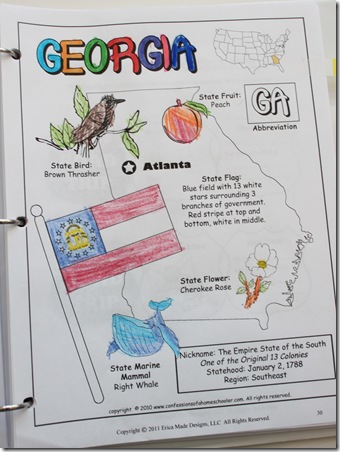 GEORGIA
State Fruit:
Peach
GA
Abbreviation
State Bird:
Brown Thrasher
Atlanta
State Flag:
Blue field with 13 white
stars surrounding 3
branches of government.
Red stripe at top and
bottom, white in middle.
State Flower:
Cherokee Rose
State Marine
Mammal
Right Whale
Nickname: The Empire State of the South
One of the Original 13 Colonies
Statehood: January 2, 1788
Region: Southeast
copyright © 2010 www.confessionsofahomeschooler.com. All rights reserved.
Copyright © 2011 Erica Made Designs, LLC All Rights Reserved.
30